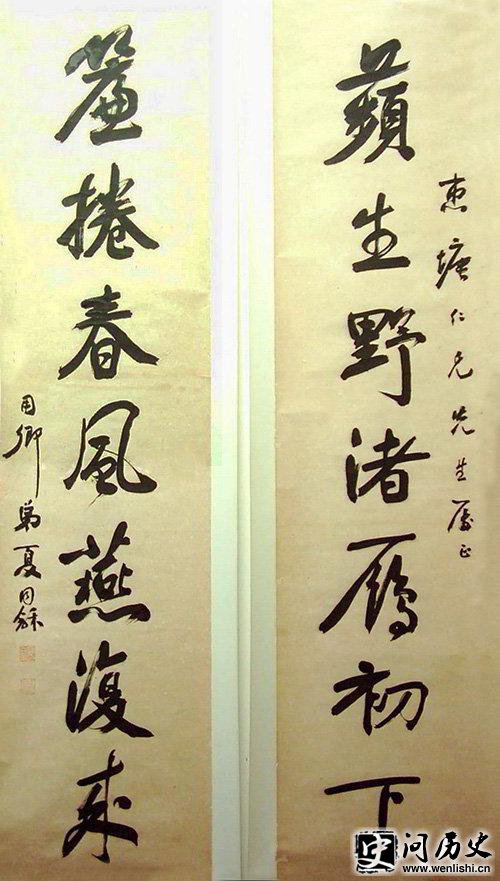 惠塘仁兄先生屬正
蘋生野渚鴈初下
簾捲春風燕復來
用卿弟夏同龢
史问历史
www.wenlishi.cn